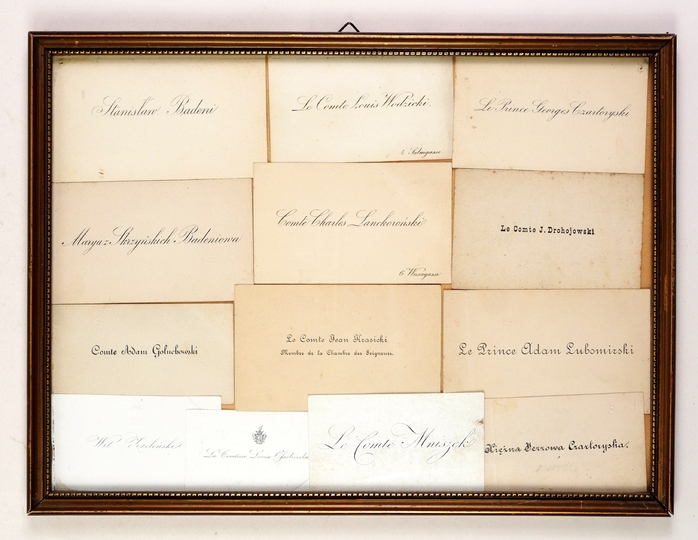 Stanisław Badeni
Le Comte Louis Wodzicki.
Le Prince Georges Czartoryski
Marya z Skrzyńskich Badeniowa
Comte Charles Lanckoroński
6 Wasagasse
Le Comte J. Drohojowski
Comte Adam Gołuchowski
Le Comte Jean Krasicki
Membre de la Chambre des Seigneurs.
Le Prince Adam Lubomirski
La Comtesse
Le Comte Mniszek
Xiężna Jerzowa Czartoryska.